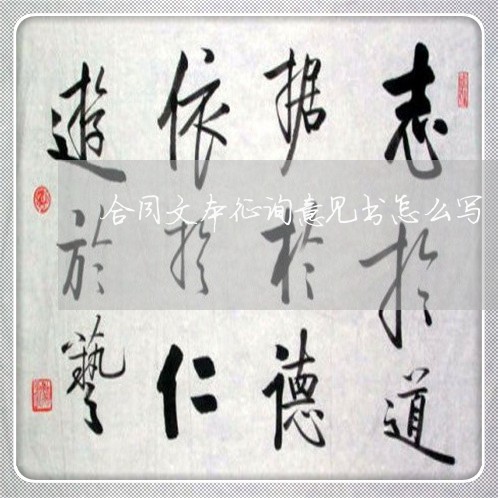 志於道
据於德
依於仁
遊於藝
合同文本征询意见书怎么写